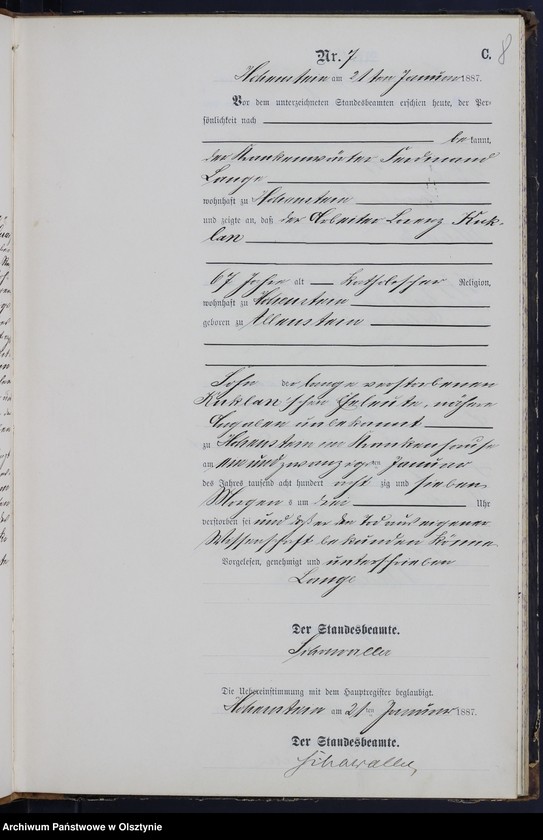 Nr. 7 C. 8
Hohenstein am 21ten Januar 1887.
Vor dem unterzeichneten Standesbeamten erschien heute, der Per-
sönlichkeit nach
bekannt,
der Krankenwärter Ferdinand
Lange
wohnhaft zu Hohenstein
und zeigte an, daß der Arbeiter Lorenz Kuk-
lan
67 Jahre alt Katholischer Religion,
wohnhaft zu Hohenstein
geboren zu Allenstein
Sohn der lange verstorbenen
Kuklan'schen Eheleute, nähere
Angaben unbekannt
zu Hohenstein im Krankenhause
am ein und zwanzigten Januar
des Jahres tausend acht hundert achtzig und sieben
Morgens um drei Uhr
verstorben sei und daß er den Tod aus eigener
Wissenschaft bekunden könne
Vorgelesen, genehmigt und unterschrieben
Lange
Der Standesbeamte.
Die Uebereinstimmung mit dem Hauptregister beglaubigt.
Hohenstein am 21ten Januar 1887.
Der Standesbeamte.
Archiwum Państwowe w Olsztynie